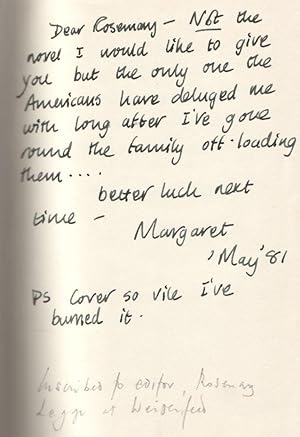 Dear Rosemary – Not the
novel I would like to give
you but the only one the
Americans have deluged me
with long after I've gone
round the family off-loading
them....
better luck next
time –
Margaret
'May' 81
PS Cover so vile I've
burned it.
Inscribed to editor, Rosemary
Legge at Weidenfeld